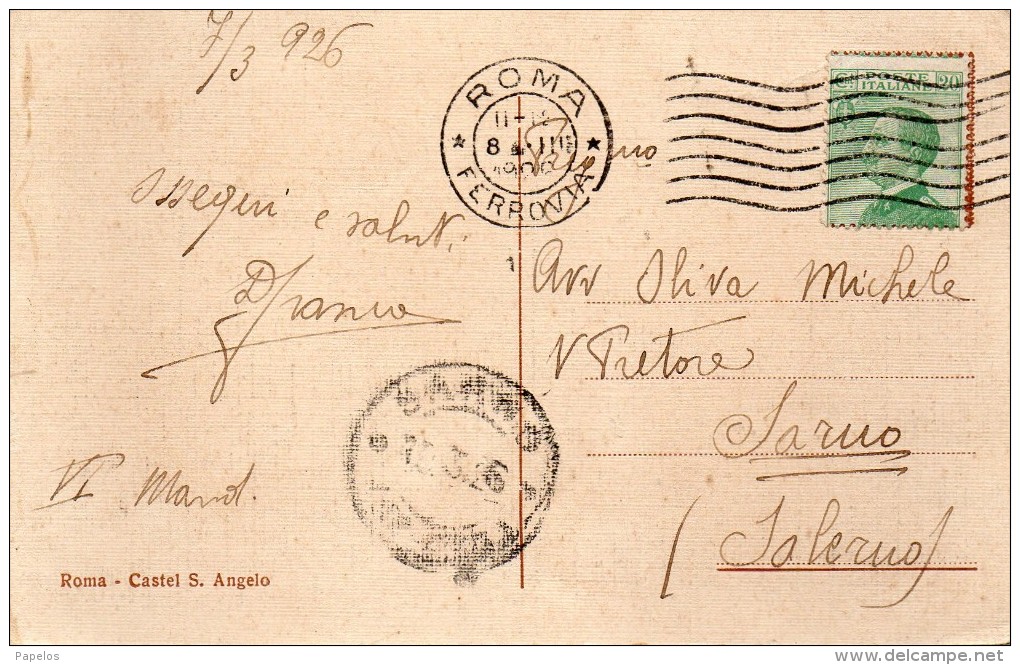 7/3 926
ROMA
FERROVIA
8 III
Cmi POSTE 20
ITALIANE
Ossequi e saluti
Avv Oliva Michele
V Pretore
Sarno
(Salerno)
VI Mand.
Roma - Castel S. Angelo
Papelos
www.delcampe.net